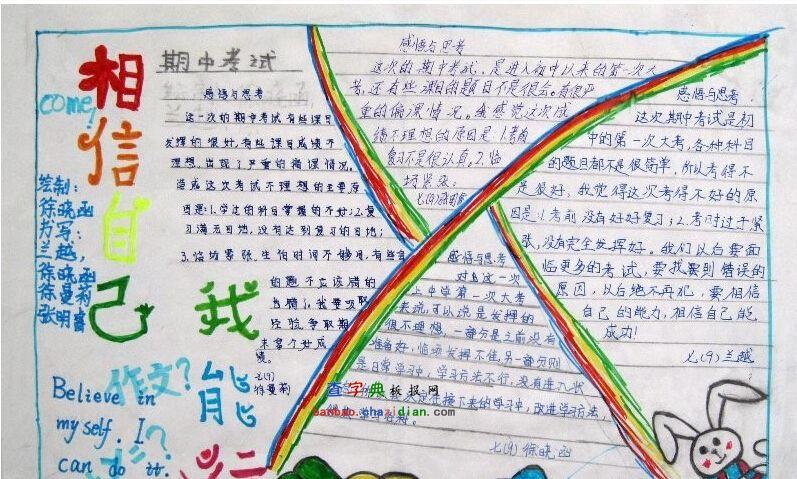 come,
相信自己
绘制：
徐晓函
书写：
兰越，
徐晓函
徐曼莉
张明睿
Believe in
my self. I
can do it.
我
能
作文？
期中考试
感悟与思考
这一次的期中考试有些课目
发挥的很好，有些课目成绩不
理想，出现了严重的偏课情况。
造成这次考试不理想的主要原
因是：1.学过的科目掌握的不好；2.复
习漫无目地，没有达到复习的目地；
3.临场紧张，生怕时间不够用，有些会
的题不应该错的
也错了。我要吸取
经验争取期
末考个好成
绩。
七(9)
徐曼莉
感悟与思考
这次的期中考试，是进入初中以来的第一次大
考，还有些课目的题目不是很会。有很严
重的偏课情况。我感觉这次成
绩不理想的原因是：1.考前
复习不是很认真。2.临
场紧张。
感悟与思考
这次期中考试是初
中的第一次大考，各种科目
的题目都不是很简单，所以考得不
是很好，我觉得这次考得不好的原
因是：1.考前没有好好复习；2.考时过于紧
张，没有完全发挥好。我们以后要面
临更多的考试，要找到错误的
原因，以后绝不再犯，要相信
自己的能力，相信自己能
成功！
七(9)兰越
感悟与思考
对于这一次
上中学第一次大考
来说，可以说是发挥的
很不理想，一部分是之前没有
准备好，临场发挥不佳，另一部分则
是日常学习中，学习方法不行，没有进入状
在接下来的学习中，改进学习方法，
七(9)徐晓函
查字典板报网
banbao.chazidian.com